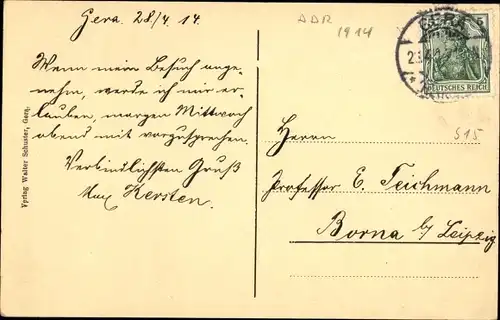 Gera. 28/4. 14.
Wenn mein Besuch ange-
nehm, werde ich mir er-
lauben, morgen Mittwoch
abend mit vorzusprechen.
Verbindlichsten Gruß
Max Kersten.
ADR
1914
DEUTSCHES REICH
515
Herrn
Professor E. Teichmann
Borna b/ Leipzig
Verlag Walter Schuster, Gera.